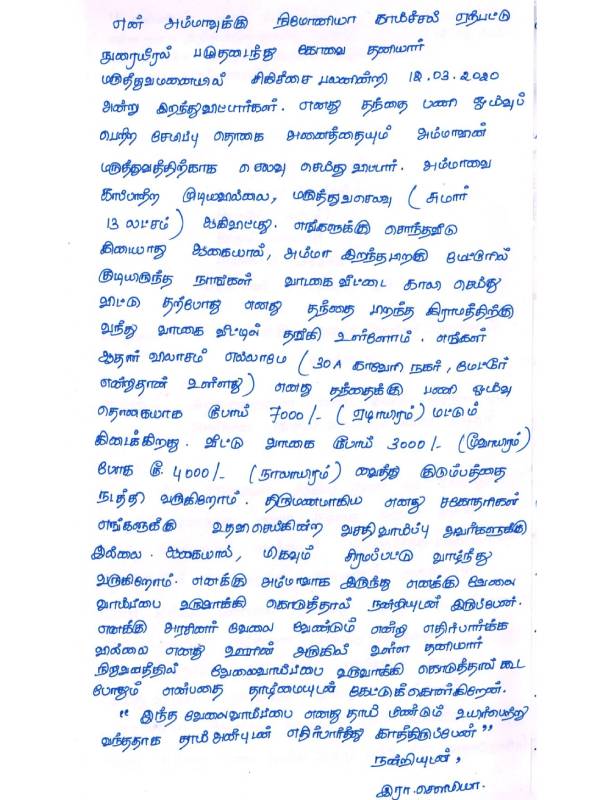 என் அம்மாவுக்கு நிமோனியா காய்ச்சல் ஏற்பட்டு
நுரையீரல் பழுதடைந்து கோவை தனியார்
மருத்துவமனையில் சிகிச்சை பலனின்றி 12.03.2020
அன்று இறந்துவிட்டார்கள். எனது தந்தை பணி ஓய்வுப்
பெற்ற சேமிப்பு தொகை அனைத்தையும் அம்மாவின்
மருத்துவத்திற்காக செலவு செய்து விட்டார். அம்மாவை
காப்பாற்ற முடியவில்லை, மருத்துவசெலவு ( சுமார்
13 லட்சம்) ஆகிவிட்டது. எங்களுக்கு சொந்தவீடு
கிடையாது ஆகையால், அம்மா இறந்தபிறகு மேட்டூரில்
குடியிருந்த நாங்கள் வாடகை வீட்டை காலி செய்து
விட்டு தற்போது எனது தந்தை பிறந்த கிராமத்திற்கு
வந்து வாடகை வீட்டில் தங்கி உள்ளோம். எங்கள்
ஆதார் விலாசம் எல்லாமே (30A காவேரி நகர், மேட்டூர்
என்றுதான் உள்ளது) எனது தந்தைக்கு பணி ஓய்வு
தொகையாக ரூபாய் 7000/- (ஏழாயிரம்) மட்டும்
கிடைக்கிறது. வீட்டு வாடகை ரூபாய் 3000/- (மூவாயிரம்)
போக ரூ. 4000/- (நாலாயிரம்) வைத்து குடும்பத்தை
நடத்தி வருகிறோம். திருமணமாகிய எனது சகோதரிகள்
எங்களுக்கு உதவிசெய்கின்ற வசதி வாய்ப்பு அவர்களுக்கு
இல்லை. ஆகையால், மிகவும் சிரமப்பட்டு வாழ்ந்து
வருகிறோம். எனக்கு அம்மாவாக இருந்து எனக்கு வேலை
வாய்ப்பை உருவாக்கி கொடுத்தால் நன்றியுடன் இருப்பேன்.
எனக்கு அரசினர் வேலை வேண்டும் என்று எதிர்பார்க்க
வில்லை எனது ஊரின் அருகில் உள்ள தனியார்
நிறுவனத்தில் வேலைவாய்ப்பை உருவாக்கி கொடுத்தால் கூட
போதும் என்பதை தாழ்மையுடன் கேட்டுக்கொள்கிறேன்.
" இந்த வேலைவாய்ப்பை எனது தாய் மீண்டும் உயிர்பெற்று
வந்ததாக தாய் அன்புடன் எதிர்பார்த்து காத்திருப்பேன்"
நன்றியுடன்,
இரா.சௌமியா.